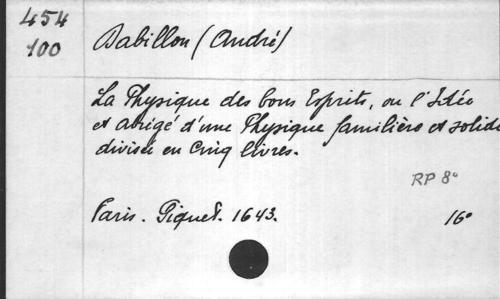 454
100
Dabillon (André)
La Physique des bons Esprits, ou l'Idée
et abrigé d'une Physique familière et solide
divisée en Cinq livres.
RP 8°
Paris. Piquet. 1643.
16°